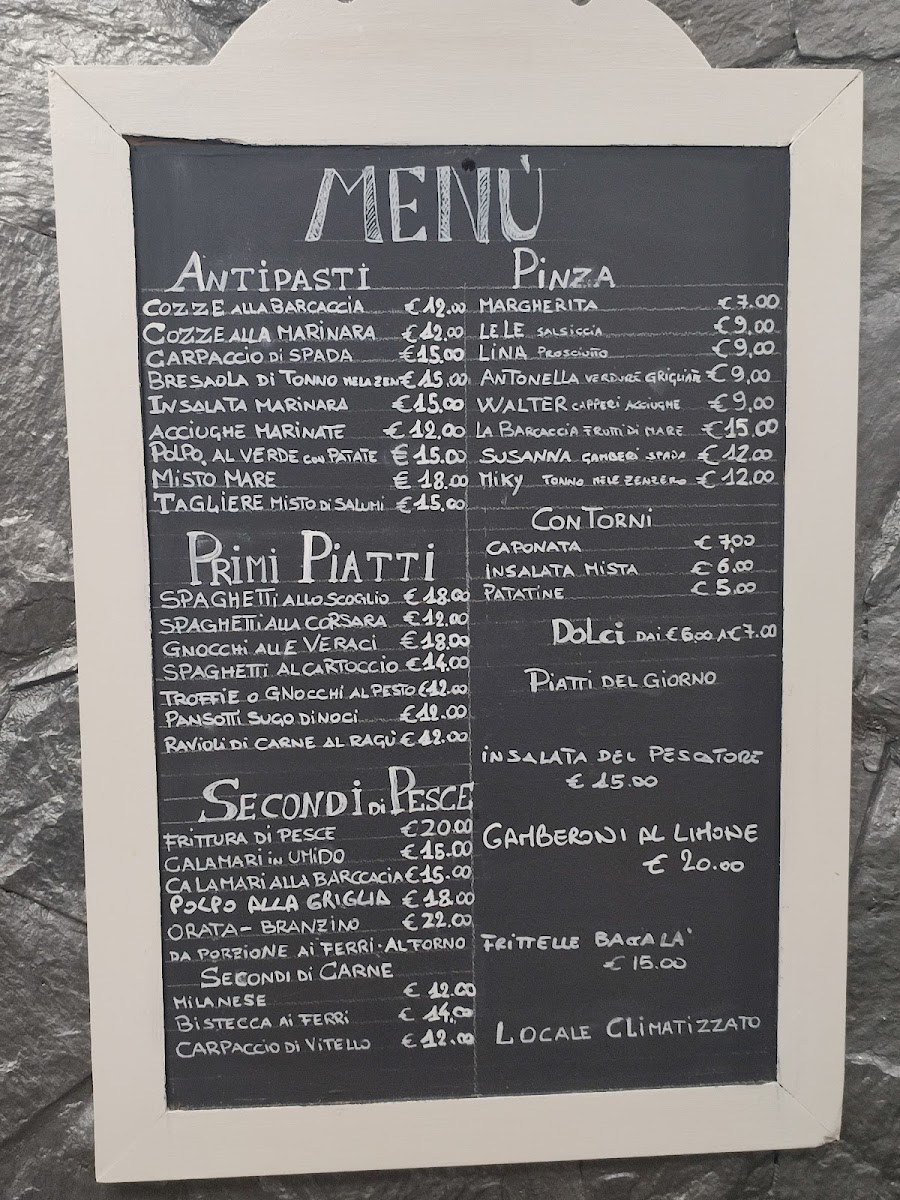 MENÙ
ANTIPASTI
COZZE ALLA BARCACCIA € 12.00
COZZE ALLA MARINARA € 12.00
CARPACCIO DI SPADA € 15.00
BRESAOLA DI TONNO MELA ZEN € 15.00
INSALATA MARINARA € 15.00
ACCIUGHE MARINATE € 12.00
POLPO AL VERDE CON PATATE € 15.00
MISTO MARE € 18.00
TAGLIERE MISTO DI SALUMI € 15,00
PRIMI PIATTI
SPAGHETTI ALLO SCOGLIO € 18.00
SPAGHETTI ALLA CORSARA € 12.00
GNOCCHI ALLE VERACI € 18.00
SPAGHETTI AL CARTOCCIO € 14.00
TROFFIE O GNOCCHI AL PESTO €12.00
PANSOTTI SUGO DI NOCI € 12.00
RAVIOLI DI CARNE AL RAGÙ € 12.00
SECONDI DI PESCE
FRITTURA DI PESCE € 20.00
CALAMARI IN UMIDO € 15.00
CALAMARI ALLA BARCCACIA € 15.00
POLPO ALLA GRIGLIA € 18.00
ORATA - BRANZINO € 22.00
DA PORZIONE AI FERRI · AL FORNO
SECONDI DI CARNE
MILANESE € 12.00
BISTECCA AI FERRI € 14,00
CARPACCIO DI VITELLO € 12.00
PINZA
MARGHERITA € 7.00
LELE SALSICCIA € 9,00
LINA PROSCIUTTO € 9,00
ANTONELLA VERDURE GRIGLIATE € 9,00
WALTER CAPPERI ACCIUGHE € 9,00
LA BARCACCIA FRUTTI DI MARE € 15.00
SUSANNA GAMBERI SPADA € 12.00
MIKY TONNO MELE ZENZERO € 12.00
CONTORNI
CAPONATA € 7,00
INSALATA MISTA € 6.00
PATATINE € 5,00
DOLCI DAI € 6,00 A € 7.00
PIATTI DEL GIORNO
INSALATA DEL PESCATORE
€ 15.00
GAMBERONI AL LIMONE
€ 20.00
FRITTELLE BACCALA'
€ 15.00
LOCALE CLIMATIZZATO